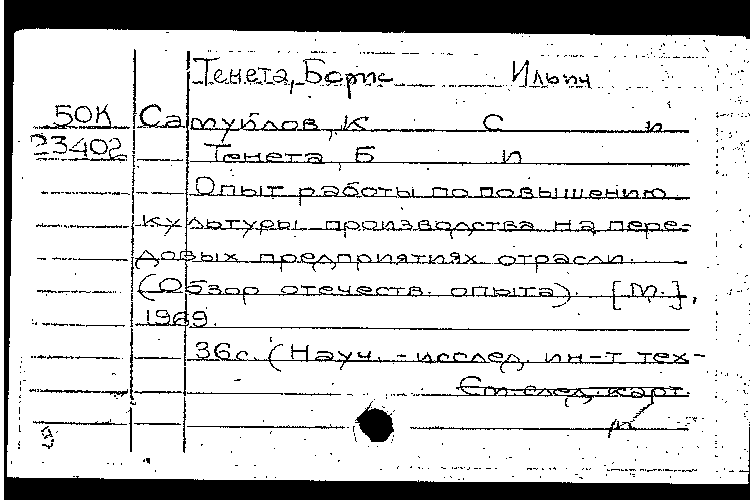 Тенета, Борис Ильич
50К Самуйлов, К С и
23402 Тенета, Б И
Опыт работы по повышению
культуры производства на пере-
довых предприятиях отрасли.
(Обзор отечеств. опыта). [М.],
1969.
36с. (Науч.-исслед. ин-т тех-
См. след. карт.